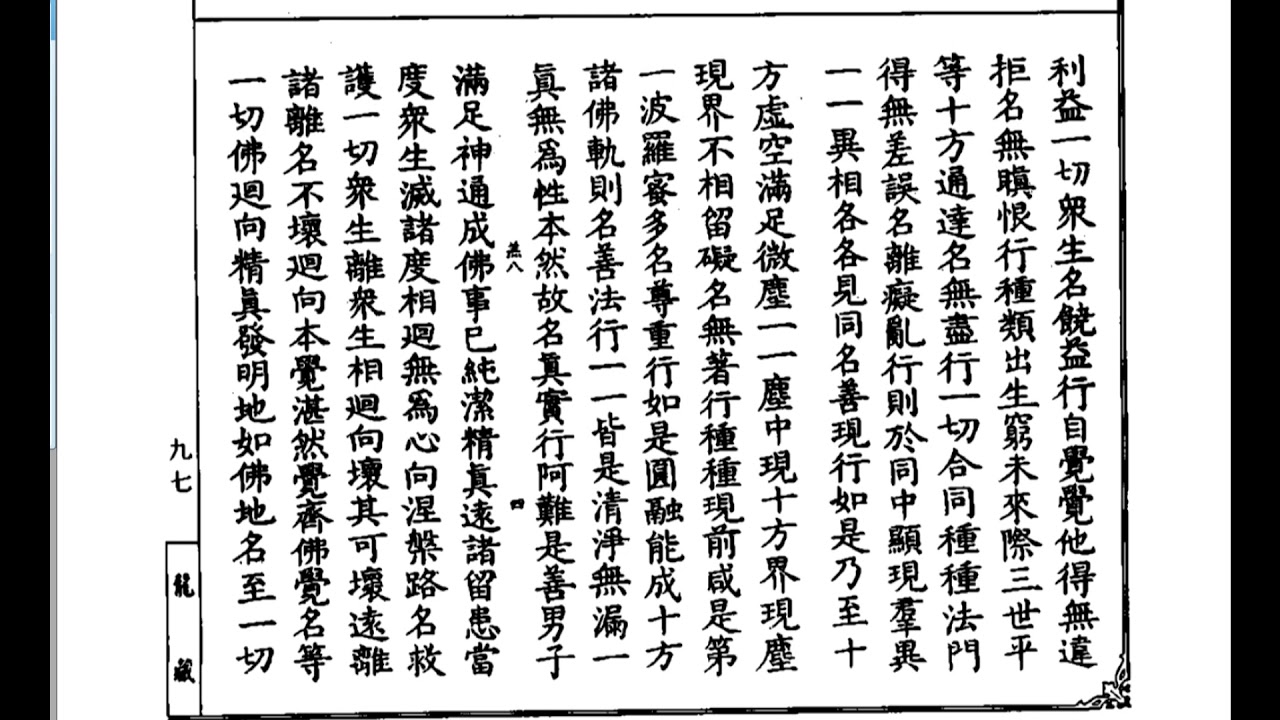 利益一切衆生名饒益行自覺覺他得無違
拒名無瞋恨行種類出生窮未來際三世平
等十方通達名無盡行一切合同種種法門
得無差誤名離癡亂行則於同中顯現羣異
一一異相各各見同名善現行如是乃至十
方虛空滿足微塵一一塵中現十方界現塵
現界不相留礙名無著行種種現前咸是第
一波羅蜜多名尊重行如是圓融能成十方
諸佛軌則名善法行一一皆是清淨無漏一
眞無爲性本然故名眞實行阿難是善男子
八
四
滿足神通成佛事已純潔精眞遠諸留患當
度衆生滅諸度相迴無爲心向涅槃路名救
護一切衆生離衆生相迴向壞其可壞遠離
諸離名不壞迴向本覺湛然覺齊佛覺名等
一切佛迴向精眞發明地如佛地名至一切
九七
龍藏